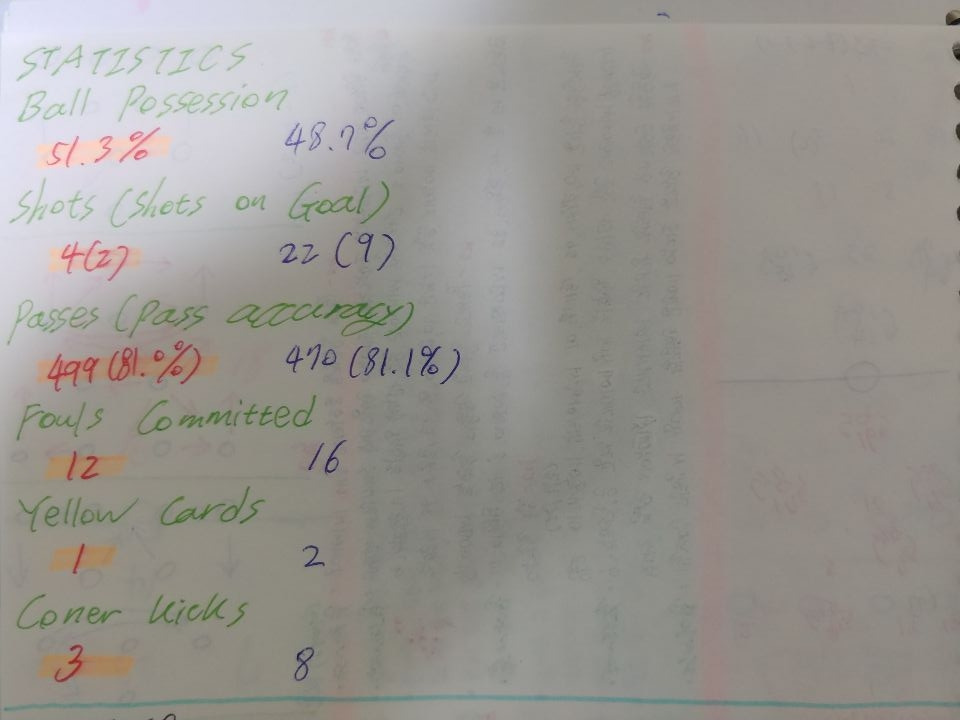 STATISTICS
Ball Possession
51.3% 48.7%
Shots (Shots on Goal)
4(2) 22 (9)
Passes (Pass accuracy)
499 (81.0%) 470 (81.1%)
Fouls Committed
12 16
Yellow Cards
1 2
Coner Kicks
3 8